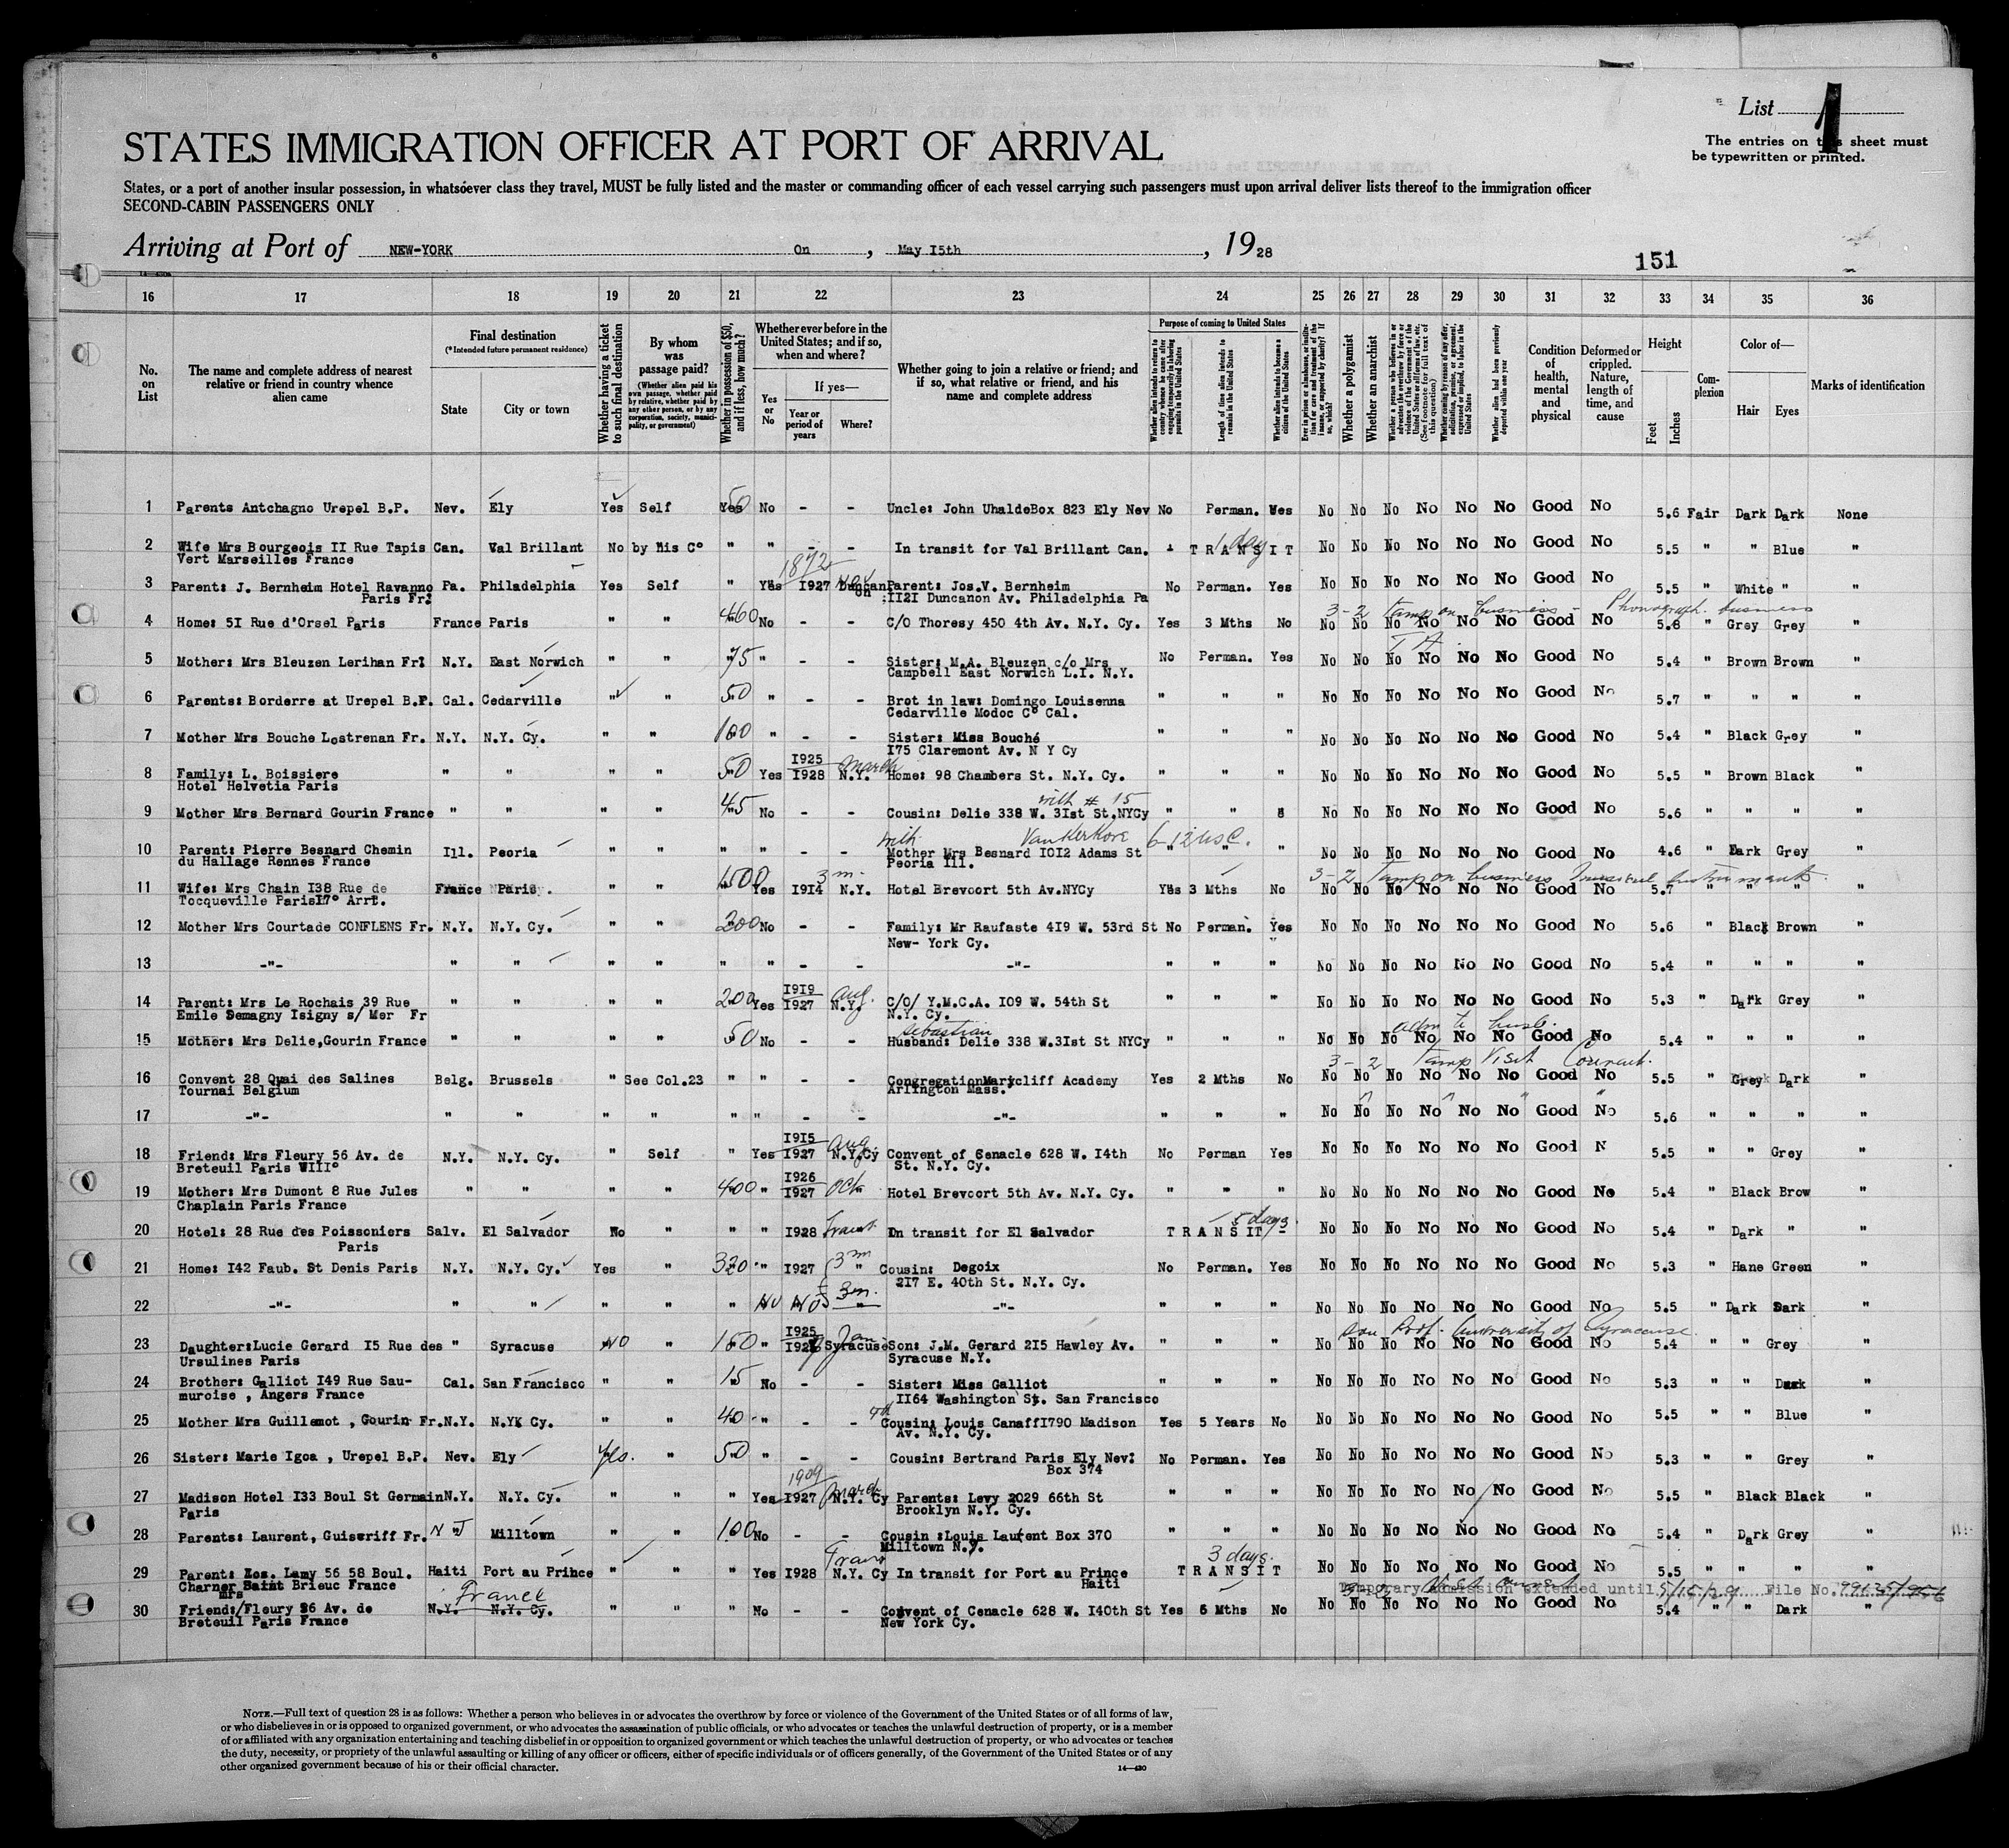 List 1
The entries on this sheet must
be typewritten or printed.
STATES IMMIGRATION OFFICER AT PORT OF ARRIVAL
States, or a port of another insular possession, in whatsoever class they travel, MUST be fully listed and the master or commanding officer of each vessel carrying such passengers must upon arrival deliver lists thereof to the immigration officer
SECOND-CABIN PASSENGERS ONLY
Arriving at Port of NEW-YORK On , May I5th , 1928
151
16 17 18 19 20 21 22 23 24 25 26 27 28 29 30 31 32 33 34 35 36
No. on List
The name and complete address of nearest relative or friend in country whence alien came
Final destination
(*Intended future permanent residence)
State City or town
Whether having a ticket to such final destination
By whom was passage paid?
(Whether alien paid his own passage, whether paid by relative, whether paid by any other person, or by any corporation, society, municipality, or government)
Whether in possession of $50, and if less, how much?
Whether ever before in the United States; and if so, when and where?
Yes or No
If yes—
Year or period of years
Where?
Whether going to join a relative or friend; and if so, what relative or friend, and his name and complete address
Purpose of coming to United States
Whether alien intends to return to country whence he came after engaging temporarily in laboring pursuits in the United States
Length of time alien intends to remain in the United States
Whether alien intends to become a citizen of the United States
Whether a polygamist
Whether an anarchist
Whether alien had been previously deported within one year
Condition of health, mental and physical
Deformed or crippled. Nature, length of time, and cause
Height
Feet Inches
Complexion
Color of—
Hair Eyes
Marks of identification
1 Parents Antchagno Urepel B.P. Nev. Ely Yes Self 50 No - - Uncle: John UhaldeBox 823 Ely Nev No Perman. Yes No No No No No No Good No 5.6 Fair Dark Dark None
2 Wife Mrs Bourgeois II Rue Tapis Can. Val Brillant No by His C° " " - - In transit for Val Brillant Can. TRANSIT 1 day No No No No No No Good No 5.5 " " Blue "
Vert Marseilles France
1872
3 Parent: J. Bernheim Hotel Ravanno Pa. Philadelphia Yes Self " Yes I927 Duncan Parent: Jos.V. Bernheim No Perman. Yes No No No No No No Good No 5.5 " White " "
Paris Fr: on II2I Duncanon Av. Philadelphia Pa
3-2 Temp on business - Phonograph business
4 Home: 5I Rue d'Orsel Paris France Paris " " 460 No - - C/O Thoresy 450 4th Av. N.Y. Cy. Yes 3 Mths No No No No No No No Good No 5.8 " Grey Grey "
5 Mother: Mrs Bleuzen Lerihan Fr: N.Y. East Norwich " " 75 " - - Sister: M.A. Bleuzen c/o Mrs No Perman. Yes No No No No No No Good No 5.4 " Brown Brown "
Campbell East Norwich L.I. N.Y.
6 Parents: Borderre at Urepel B.P. Cal. Cedarville " " 50 " - - Brot in law: Domingo Louisenna " " " No No No No No No Good No 5.7 " " " "
Cedarville Modoc C° Cal.
7 Mother Mrs Bouche Lostrenan Fr. N.Y. N.Y. Cy. " " 100 " - - Sister: Miss Bouché " " " No No No No No No Good No 5.4 " Black Grey "
I75 Claremont Av. N Y Cy
I925 March
8 Family: L. Boissiere " " " " 50 Yes I928 N.Y. Home: 98 Chambers St. N.Y. Cy. " " " No No No No No No Good No 5.5 " Brown Black "
Hotel Helvetia Paris
with # 15
9 Mother Mrs Bernard Gourin France " " " " 45 No - - Cousin: Delie 338 W. 3Ist St.NYCy " " " No No No No No No Good No 5.6 " " " "
with
10 Parent: Pierre Besnard Chemin Ill. Peoria " " " " - - Mother Mrs Besnard I0I2 Adams St " " " No No No No No No Good No 4.6 " Dark Grey "
du Hallage Rennes France Peoria Ill.
3-2 Temp on business Musical Instruments
11 Wife: Mrs Chain I38 Rue de France Paris " " 1500 Yes I9I4 3 m. N.Y. Hotel Brevoort 5th Av.NYCy Yes 3 Mths No No No No No No No Good No 5.7 " " " "
Tocqueville ParisI7° Arrt.
12 Mother Mrs Courtade CONFLENS Fr. N.Y. N.Y. Cy. " " 200 No - - Family: Mr Raufaste 4I9 W. 53rd St No Perman. Yes No No No No No No Good No 5.6 " Black Brown "
New- York Cy.
13 -"- " " " " " " - - -"- " " " No No No No No No Good No 5.4 " " " "
I9I9 Aug.
14 Parent: Mrs Le Rochais 39 Rue " " " " 200 Yes I927 N.Y. C/O/ Y.M.C.A. I09 W. 54th St " " " No No No No No No Good No 5.3 " Dark Grey "
Emile Demagny Isigny s/ Mer Fr N.Y. Cy.
Sebastian adm to husb.
15 Mother: Mrs Delie,Gourin France " " " " 50 No - - Husband: Delie 338 W.3Ist St NYCy " " " No No No No No No Good No 5.4 " " " "
3-2 Temp Visit Convent.
16 Convent 28 Quai des Salines Belg. Brussels " See Col.23 " " - - Congregation Marycliff Academy Yes 2 Mths No No No No No No No Good No 5.5 " Grey Dark "
Tournai Belgium Arlington Mass.
17 -"- " " " " " " - - -"- " " " No No No No No No Good No 5.6 " " " "
I9I5 Aug
18 Friend: Mrs Fleury 56 Av. de N.Y. N.Y. Cy. Self " Yes I927 N.Y.Cy Convent of Cenacle 628 W. I4th No Perman Yes No No No No No No Good N 5.5 " " Grey "
Breteuil Paris VIII° St. N.Y. Cy.
I926
19 Mother: Mrs Dumont 8 Rue Jules " " " " 400 " I927 Oct Hotel Brevoort 5th Av. N.Y. Cy. " " " No No No No No No Good No 5.4 " Black Brow "
Chaplain Paris France
20 Hotel: 28 Rue des Poissoniers Salv. El Salvador No " " " I928 Transit In transit for El Salvador TRANSIT 5 days No No No No No No Good No 5.4 " Dark " "
Paris
21 Home: I42 Faub. St Denis Paris N.Y. N.Y. Cy. Yes " 320 " I927 3 m " Cousin: Degoix No Perman. Yes No No No No No No Good No 5.3 " Hane Green "
2I7 E. 40th St. N.Y. Cy.
22 -"- " " " " " No No 3m. -"- " " " No No No No No No Good No 5.5 " Dark Dark "
I925 Jan son Prof. University of Syracuse
23 Daughter:Lucie Gerard I5 Rue des " Syracuse No " 150 " Syracuse Son: J.M. Gerard 2I5 Hawley Av. " " " No No No No No No Good No 5.4 " " Grey "
Ursulines Paris Syracuse N.Y.
24 Brother: Galliot I49 Rue Sau- Cal. San Francisco " " 15 No - - Sister: Miss Galliot " " " No No No No No No Good No 5.3 " " Dark "
muroise , Angers France II64 Washington St. San Francisco
25 Mother Mrs Guillemot , Gourin Fr. N.Y. N.Y. Cy. " " 40 " - - Cousin: Louis CanaffI790 Madison Yes 5 Years No No No No No No No Good No 5.5 " " Blue "
Av. N.Y. Cy.
26 Sister: Marie Igoa , Urepel B.P. Nev. Ely Yes. " 50 " - - Cousin: Bertrand Paris Ely Nev: No Perman. Yes No No No No No No Good No 5.3 " " Grey "
Box 374
1909 March
27 Madison Hotel I33 Boul St Germain N.Y. N.Y. Cy. " " " Yes I927 N.Y. Cy Parents: Levy 2029 66th St " " " No No No No No No Good No 5.5 " Black Black "
Paris Brooklyn N.Y. Cy.
28 Parents: Laurent, Guiscriff Fr. N J Milltown " " 100 No - - Cousin :Louis Laurent Box 370 " " " No No No No No No Good No 5.4 " Dark Grey "
Milltown N.J.
Trans 3 days.
29 Parent: Zos. Lamy 56 58 Boul. Haiti Port au Prince " " " Yes I928 N.Y. Cy In transit for Port au Prince TRANSIT No No No No No No Good No 5.5 " " " "
Charner Saint Brieuc France Haiti
Temporary admission extended until 5/15/29 File No.
mrs France
30 Friend:/Fleury 56 Av. de N.Y. N.Y. Cy. " " " No - - Convent of Cenacle 628 W. I40th St Yes 6 Mths No No No No No No No Good No 5.4 " " Dark "
Breteuil Paris France New York Cy.
NOTE.—Full text of question 28 is as follows: Whether a person who believes in or advocates the overthrow by force or violence of the Government of the United States or of all forms of law,
or who disbelieves in or is opposed to organized government, or who advocates the assassination of public officials, or who advocates or teaches the unlawful destruction of property, or is a member
of or affiliated with any organization entertaining and teaching disbelief in or opposition to organized government or which teaches the unlawful destruction of property, or who advocates or teaches
the duty, necessity, or propriety of the unlawful assaulting or killing of any officer or officers, either of specific individuals or of officers generally, of the Government of the United States or of any
other organized government because of his or their official character.
14—430